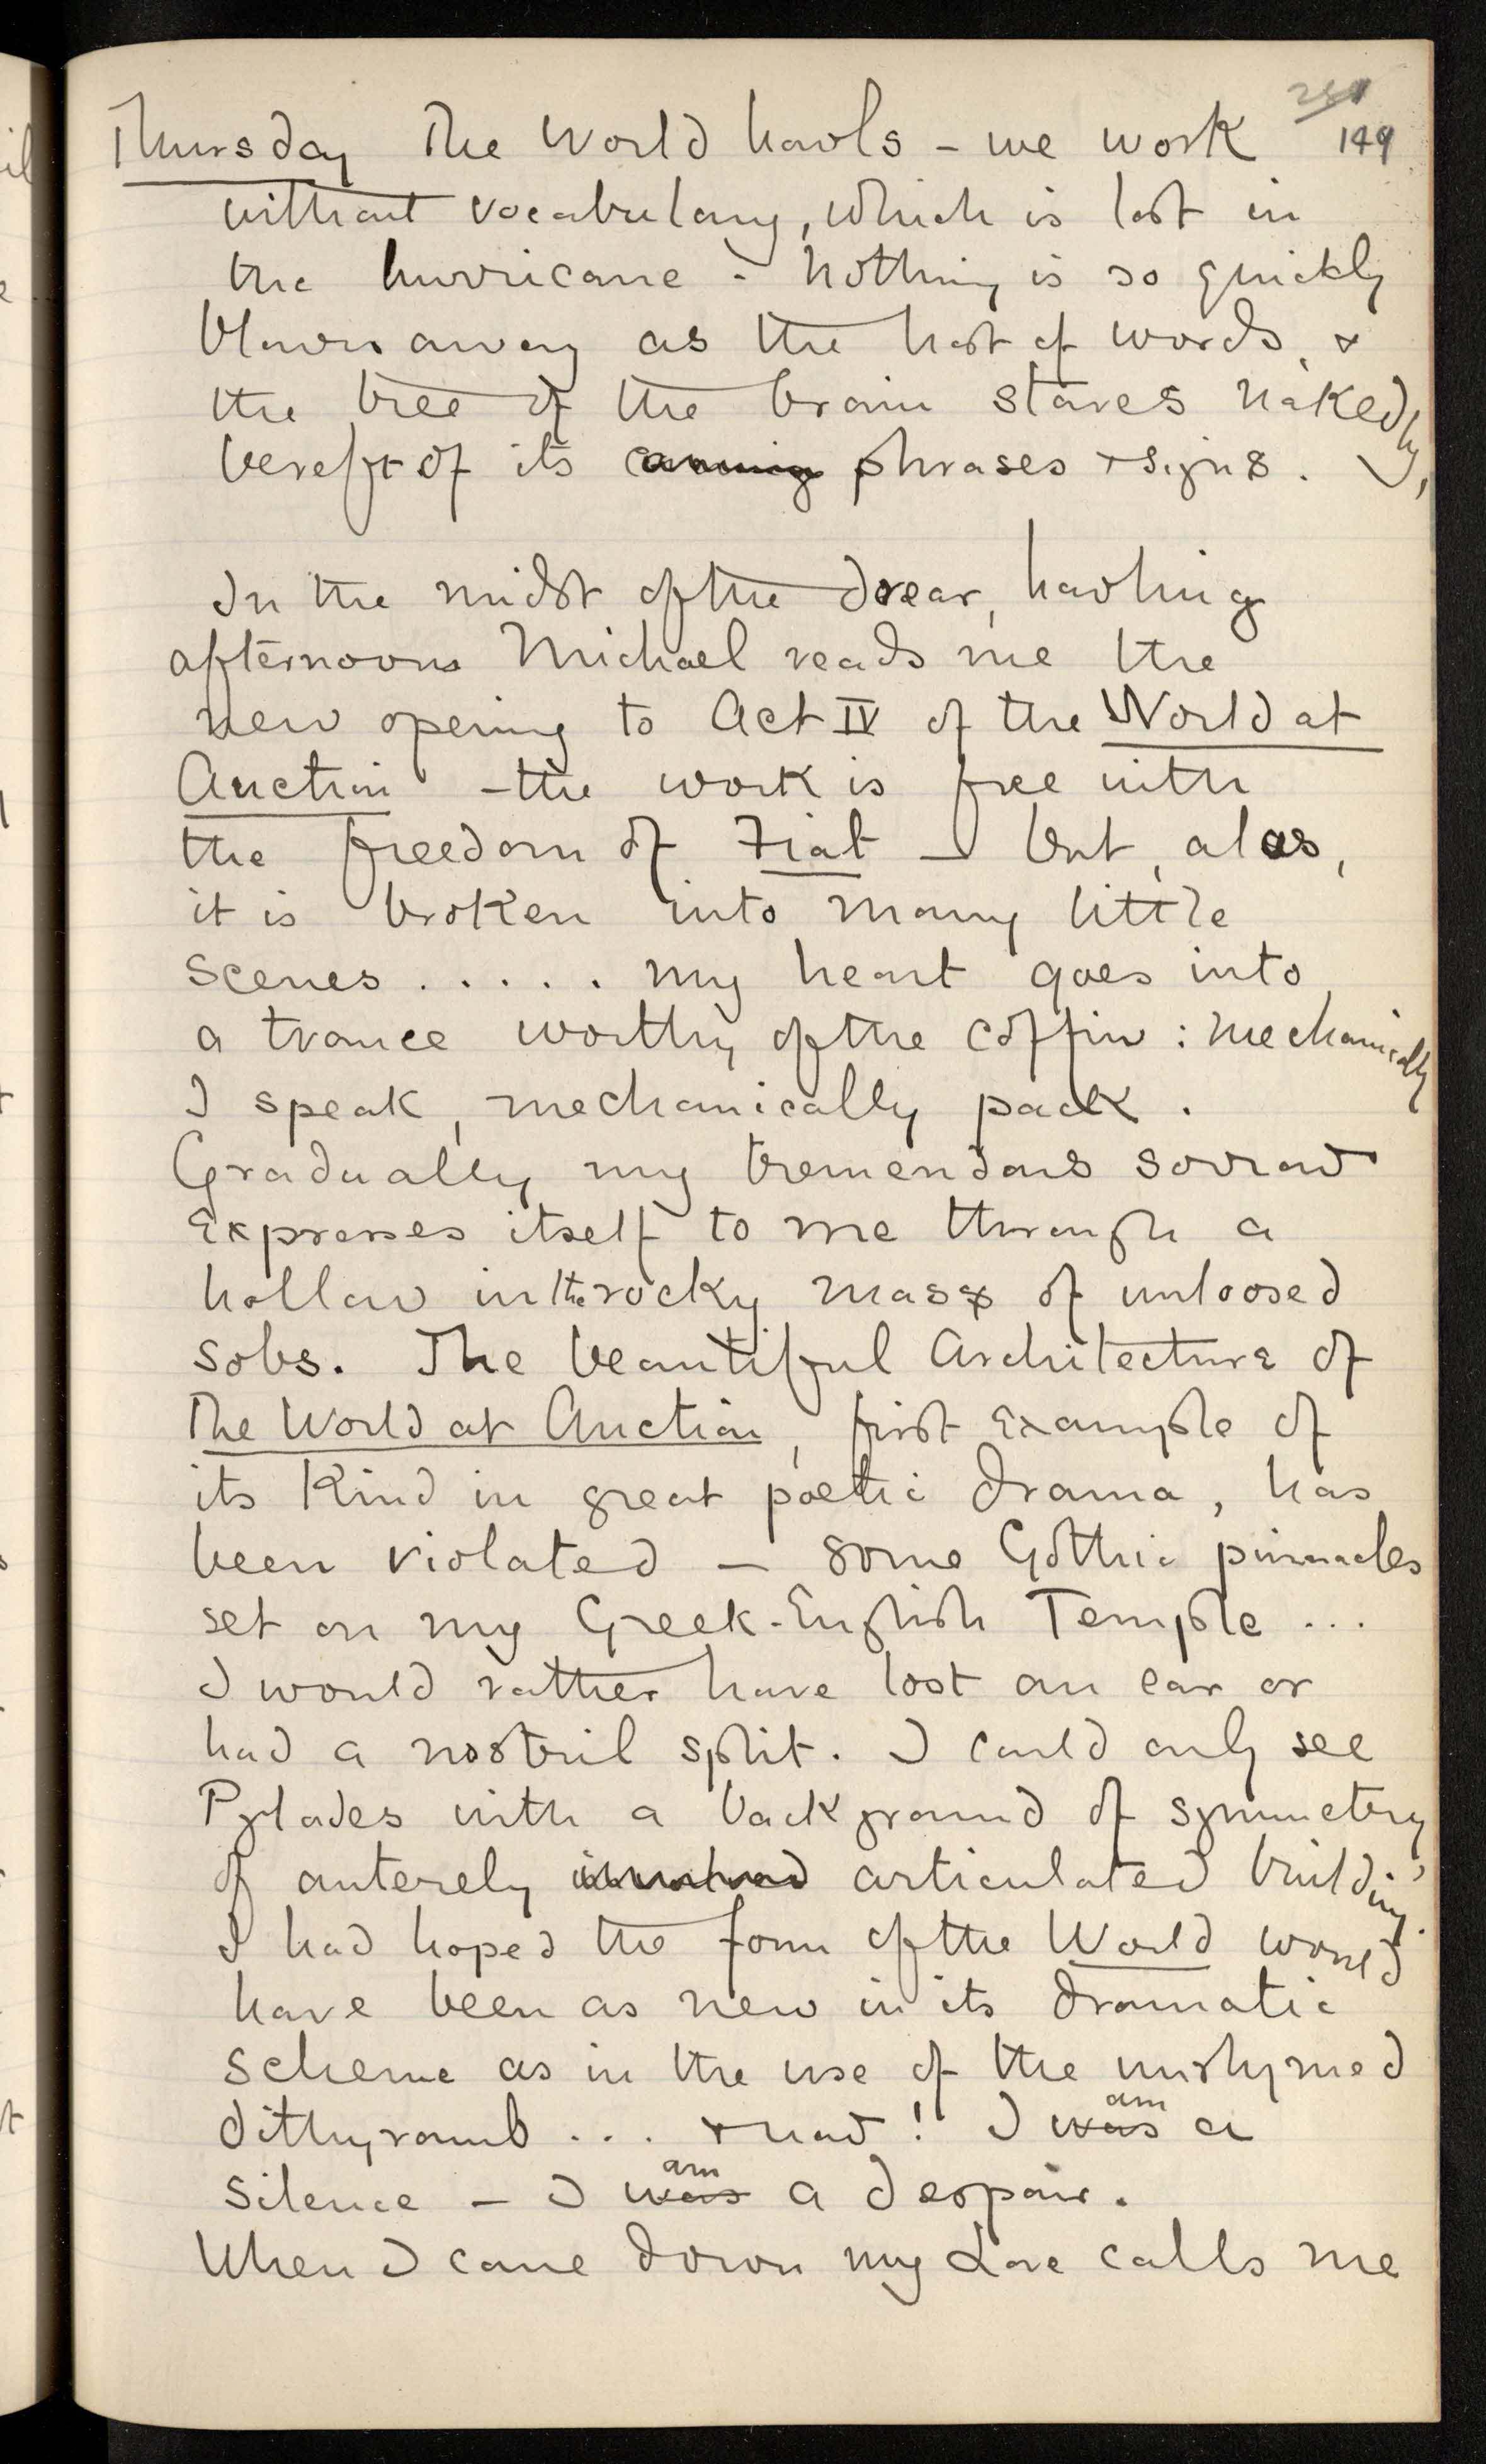 251
149
Thursday The World howls - we work
without vocabulary, which is lost in
the hurricane - Nothing is so quickly
blown away as the host of words, &
the tree of the brain stares nakedly,
bereft of its phrases & signs.
In the midst of the drear, howling
afternoon Michael reads me the
new opening to Act IV of the World at
Auction - the work is free with
the freedom of Fiat - but, alas,
it is broken into many little
scenes ..... my heart goes into
a trance worthy of the coffin : mechanically
I speak, mechanically pack.
Gradually my tremendous sorrow
expresses itself to me through a
hollow in the rocky mass of unloosed
sobs. The beautiful Architecture of
The World at Auction, first example of
its kind in great poetic drama, has
been violated - some Gothic pinnacles
set on my Greek-English Temple ...
I would rather have lost an ear or
had a nostril split. I could only see
Pylades with a background of symmetry,
of austerely involved articulated building.
I had hoped the form of the World would
have been as new in its dramatic
scheme as in the use of the unrhymed
dithyramb ... & now! I was am a
silence - I was am a despair.
When I come down my Love calls me